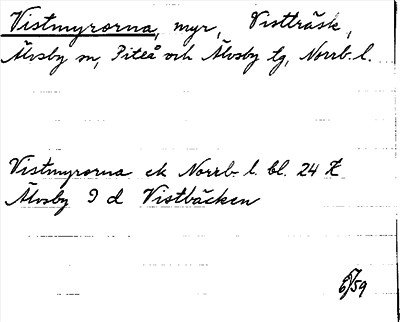 Vistmyrorna, myr, Vistträsk,
Älvsby sn, Piteå och Älvsby tg, Norrb. l.
Vistmyrorna ek Norrb. l. bl. 24
Älvsby 9 d Vistbäcken
/59